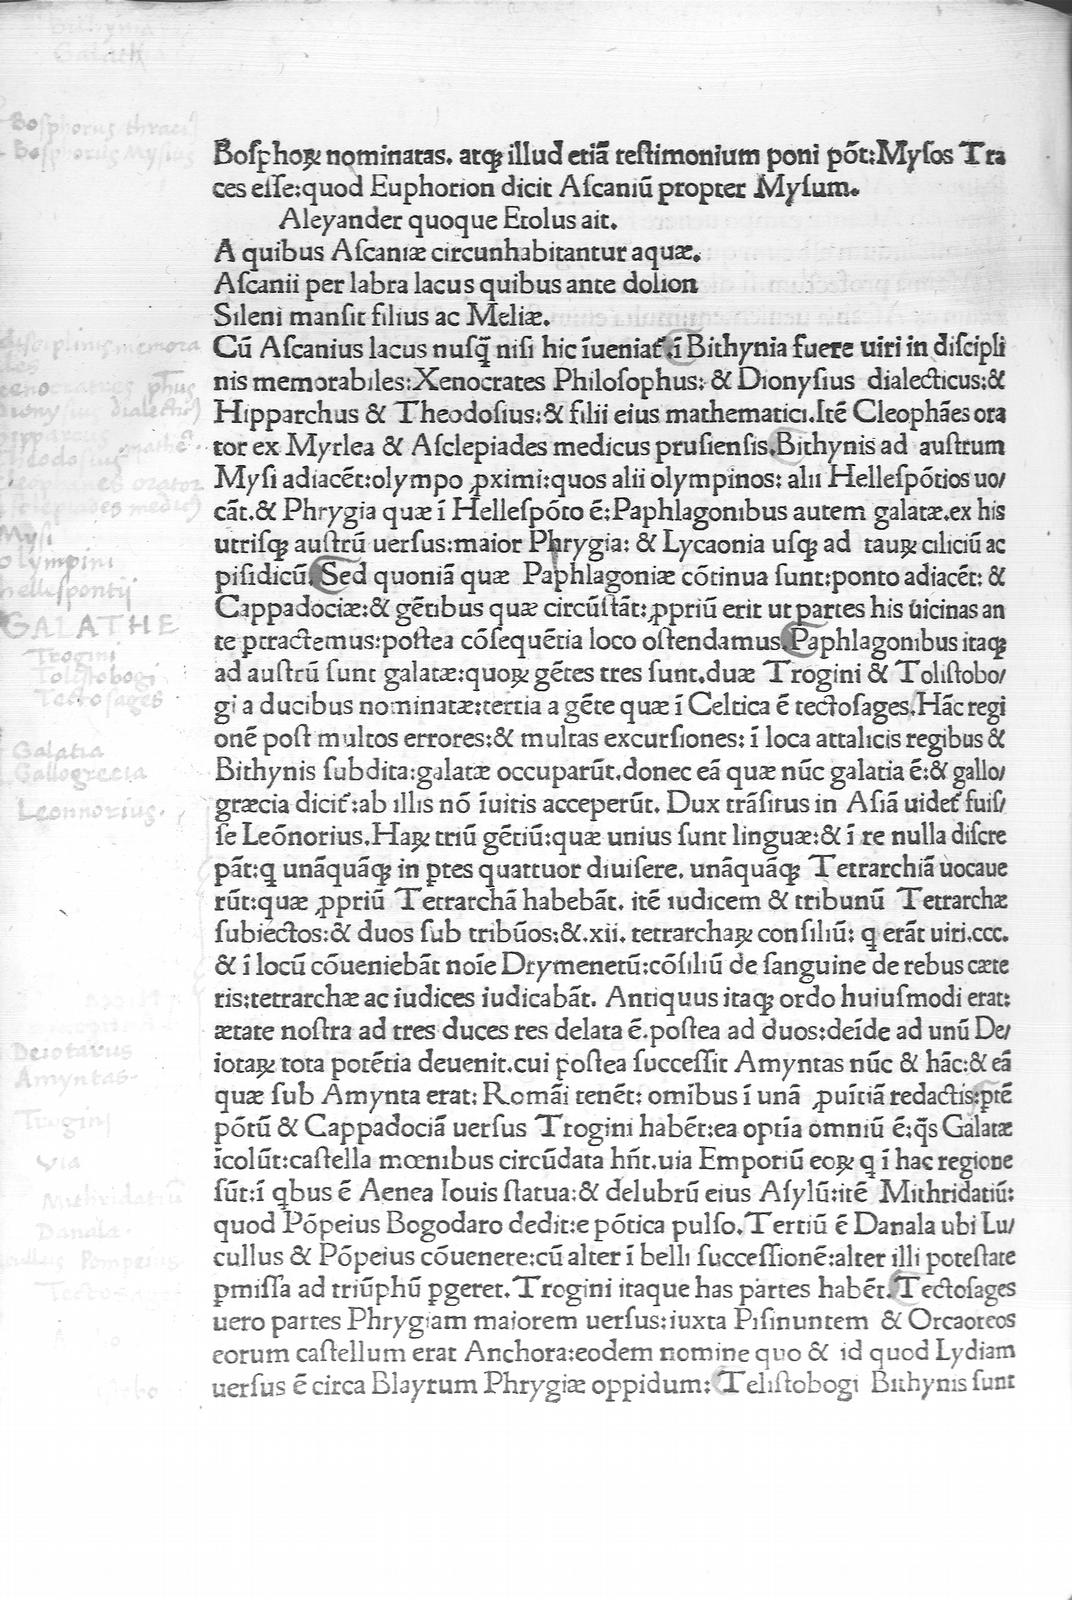 Boſphoꝝ nominatas. atqꝫ illud etiā teſtimonium poni pōt:Myſos Tra
ces eſſe:quod Euphorion dicit Aſcaniū propter Myſum.
Aleyander quoque Etolus ait.
A quibus Aſcaniæ circunhabitantur aquæ.
Aſcanii per labra lacus quibus ante dolion
Sileni manſit filius ac Meliæ.
Cū Aſcanius lacus nuſq̄ niſi hic īueniat᷑.ī Bithynia fuere uiri in diſcipli
nis memorabiles:Xenocrates Philoſophus: & Dionyſius dialecticus:&
Hipparchus & Theodoſius:& filii eius mathematici.Itē Cleophāes ora
tor ex Myrlea & Aſclepiades medicus pruſienſis.Bithynis ad auſtrum
Myſi adiacēt:olympo ꝓximi:quos alii olympinos: alii Helleſpōtios uo/
cāt.& Phrygia quæ ī Helleſpōto ē:Paphlagonibus autem galatæ.ex his
utriſqꝫ auſtrū uerſus:maior Phrygia: & Lycaonia uſqꝫ ad tauꝝ ciliciū ac
piſidicū.Sed quoniā quæ Paphlagoniæ cōtinua ſunt:ponto adiacēt: &
Cappadociæ:& gētibus quæ circūſtāt:ꝓpriū erit ut partes his uicinas an
te ꝑtractemus:poſtea cōſequētia loco oſtendamus.Paphlagonibus itaqꝫ
ad auſtrū ſunt galatæ:quoꝝ gētes tres ſunt.duæ Trogini & Toliſtobo/
gi a ducibus nominatæ:tertia a gēte quæ ī Celtica ē tectoſages.Hāc regi
onē poſt multos errores:& multas excurſiones: ī loca attalicis regibus &
Bithynis ſubdita:galatæ occuparūt.donec eā quæ nūc galatia ē:& gallo/
græcia dicit᷑:ab illis nō īuitis acceperūt. Dux trāſitus in Aſiā uidet᷑ fuiſ/
ſe Leōnorius.Haꝝ triū gētiū:quæ unius ſunt linguæ:& ī re nulla diſcre
pāt:q unāquāqꝫ in ꝑtes quattuor diuiſere. unāquāqꝫ Tetrarchiā uocaue
rūt:quæ ꝓpriū Tetrarchā habebāt. itē iudicem & tribunū Tetrarchæ
ſubiectos:& duos ſub tribūos:&.xii. tetrarchaꝝ conſiliū: q erāt uiri.ccc.
& ī locū cōueniebāt noīe Drymenetū:cōſiliū de ſanguine de rebus cæte
ris:tetrarchæ ac iudices iudicabāt. Antiquus itaqꝫ ordo huiuſmodi erat:
ætate noſtra ad tres duces res delata ē.poſtea ad duos:deīde ad unū De/
iotaꝝ tota potētia deuenit.cui poſtea ſucceſſit Amyntas nūc & hāc:& eā
quæ ſub Amynta erat: Romāi tenēt: omībus ī unā ꝓuītiā redactis:ꝑtē
pōtū & Cappadociā uerſus Trogini habēt:ea optīa omniū ē:q̄s Galatæ
īcolūt:caſtella mœnibus circūdata hn̄t.uia Emporiū eoꝝ q ī hac regione
ſūt:ī qbus ē Aenea Iouis ſtatua:& delubrū eius Aſylū:itē Mithridatiū:
quod Pōpeius Bogodaro dedit:e pōtica pulſo.Tertiū ē Danala ubi Lu/
cullus & Pōpeius cōuenere:cū alter ī belli ſucceſſionē:alter illi poteſtate
ꝑmiſſa ad triūphū ꝑgeret.Trogini itaque has partes habēt.Tectoſages
uero partes Phrygiam maiorem uerſus:iuxta Piſinuntem & Orcaoteos
eorum caſtellum erat Anchora:eodem nomine quo & id quod Lydiam
uerſus ē circa Blayrum Phrygiæ oppidum: Teliſtobogi Bithynis ſunt
Bithynia
Boſphorus
Boſphorus Myſius
diſciplinis memora
dionyſius
orator
Myſi
olympini
helleſpontij
GALATHE
Trogini
Toliſtobogi
Tectoſages
Galatia
Gallogrecia
Leonnorius.
Deiotarus
Amyntas
Trogini
Via
Mithridatiū
Danala.
Pompeius
Tectosages